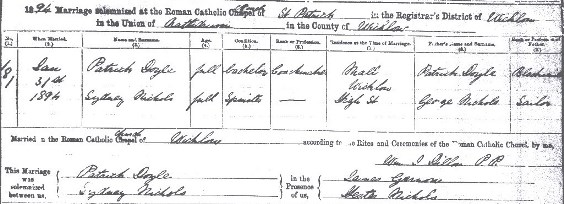 1894 Marriage solemnized at the Roman Catholic Chapel of Church St Patrick in the Registrar's District of Wicklow
in the Union of Rathdrum in the County of Wicklow
No. When Married. Name and Surname. Age. Condition. Rank or Profession. Residence at the Time of Marriage. Father's Name and Surname. Rank or Profession of Father.
Jan Patrick Doyle full Bachelor Coachmaker Mall Wicklow Patrick Doyle
31st
1894 Sydney Nichols full Spinster — High St George Nichols Sailor
Married in the Roman Catholic Chapel of Church Wicklow according to the Rites and Ceremonies of the Roman Catholic Church, by me,
Wm J Dillon P.P.
This Marriage was solemnized between us, Patrick Doyle in the Presence of us, James
Sydney Nichols Nichols